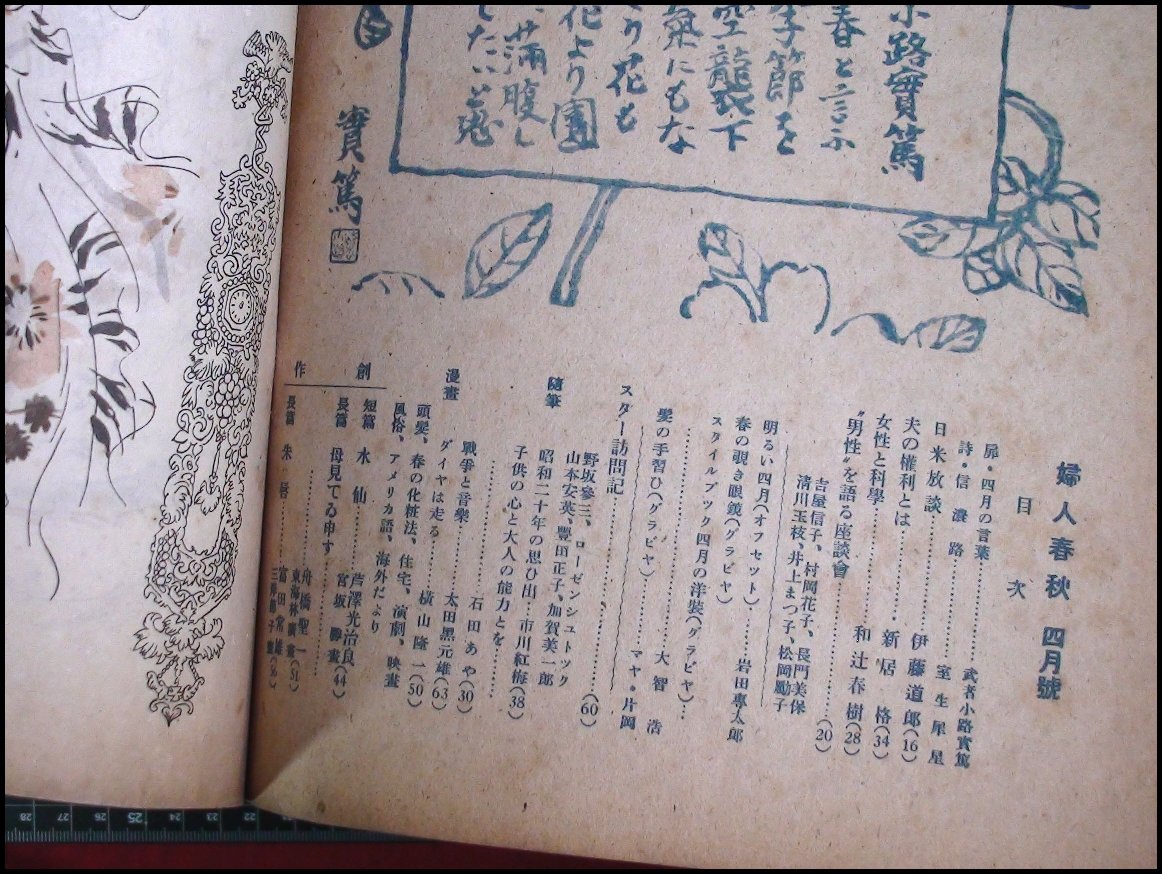 小路實篤
春と言ふ
季節を
空襲下
氣にもな
り花も
花より團
満腹し
したい
實篤
婦人春秋 四月號
目次
扉・四月の言葉………武者小路實篤
詩・信濃路………室生犀星
日米放談………伊藤道郎(16)
夫の權利とは………新居格(34)
女性と科學………和辻春樹(28)
〝男性〟を語る座談會………(20)
吉屋信子、村岡花子、長門美保
淸川玉枝、井上まつ子、松岡勵子
明るい四月(オフセット)………岩田專太郎
春の覗き眼鏡(グラビヤ)
スタイルブック四月の洋裝(グラビヤ)…
………大智浩
髪の手習ひ(グラビヤ)
スター訪問記………マヤ・片岡
野坂參三、ローゼンシュトック………(60)
山本安英、豐田正子、加賀美一郎
隨筆
昭和二十年の思ひ出…市川紅梅(38)
子供の心と大人の能力とを………
………石田あや(30)
戰爭と音樂………太田黑元雄(63)
漫畫
ダイヤは走る………橫山隆一(50)
頭髪、春の化粧法、住宅、演劇、映畫
風俗、アメリカ語、海外だより
創作
短篇 水仙………芹澤光治良(44)
宮坂勝畫
長篇 母見てゐ申す………舟橋聖一(51)
東海林廣畫
長篇 朱唇………富田常雄(56)
28 27 26 25 24 23 22